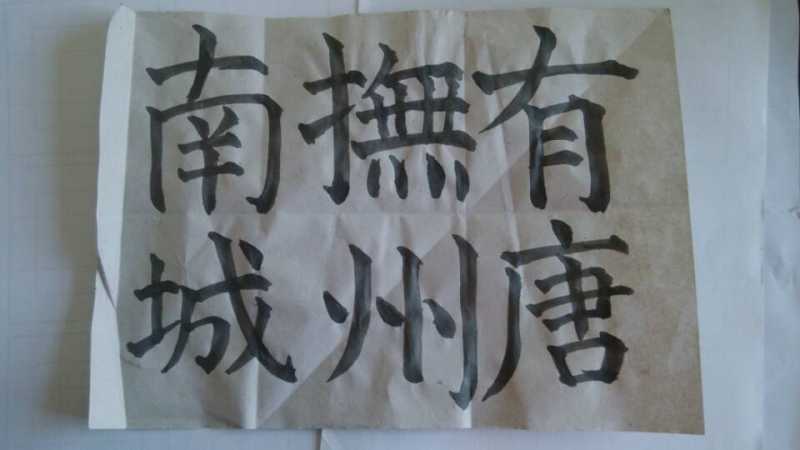 有唐
撫州
南城